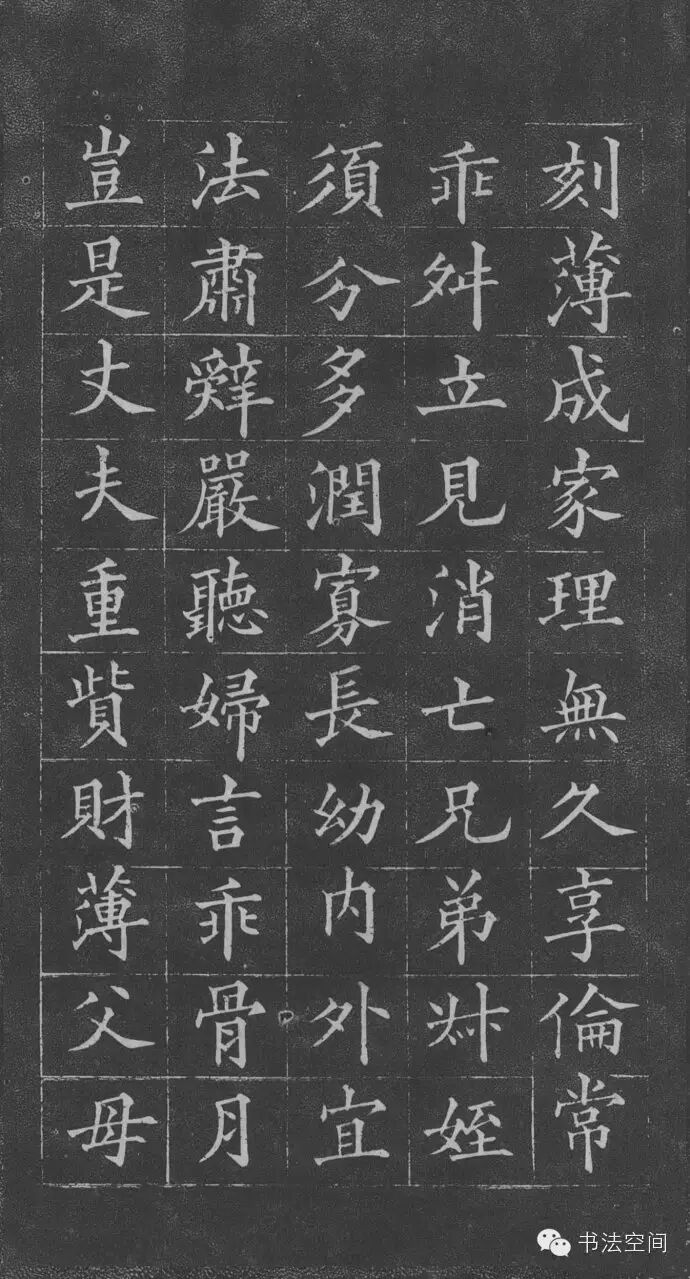 刻薄成家理無久享倫常
乖舛立見消亡兄弟叔姪
須分多潤寡長幼内外宜
法肅辤嚴聽婦言乖骨月
豈是丈夫重貲財薄父母
书法空间